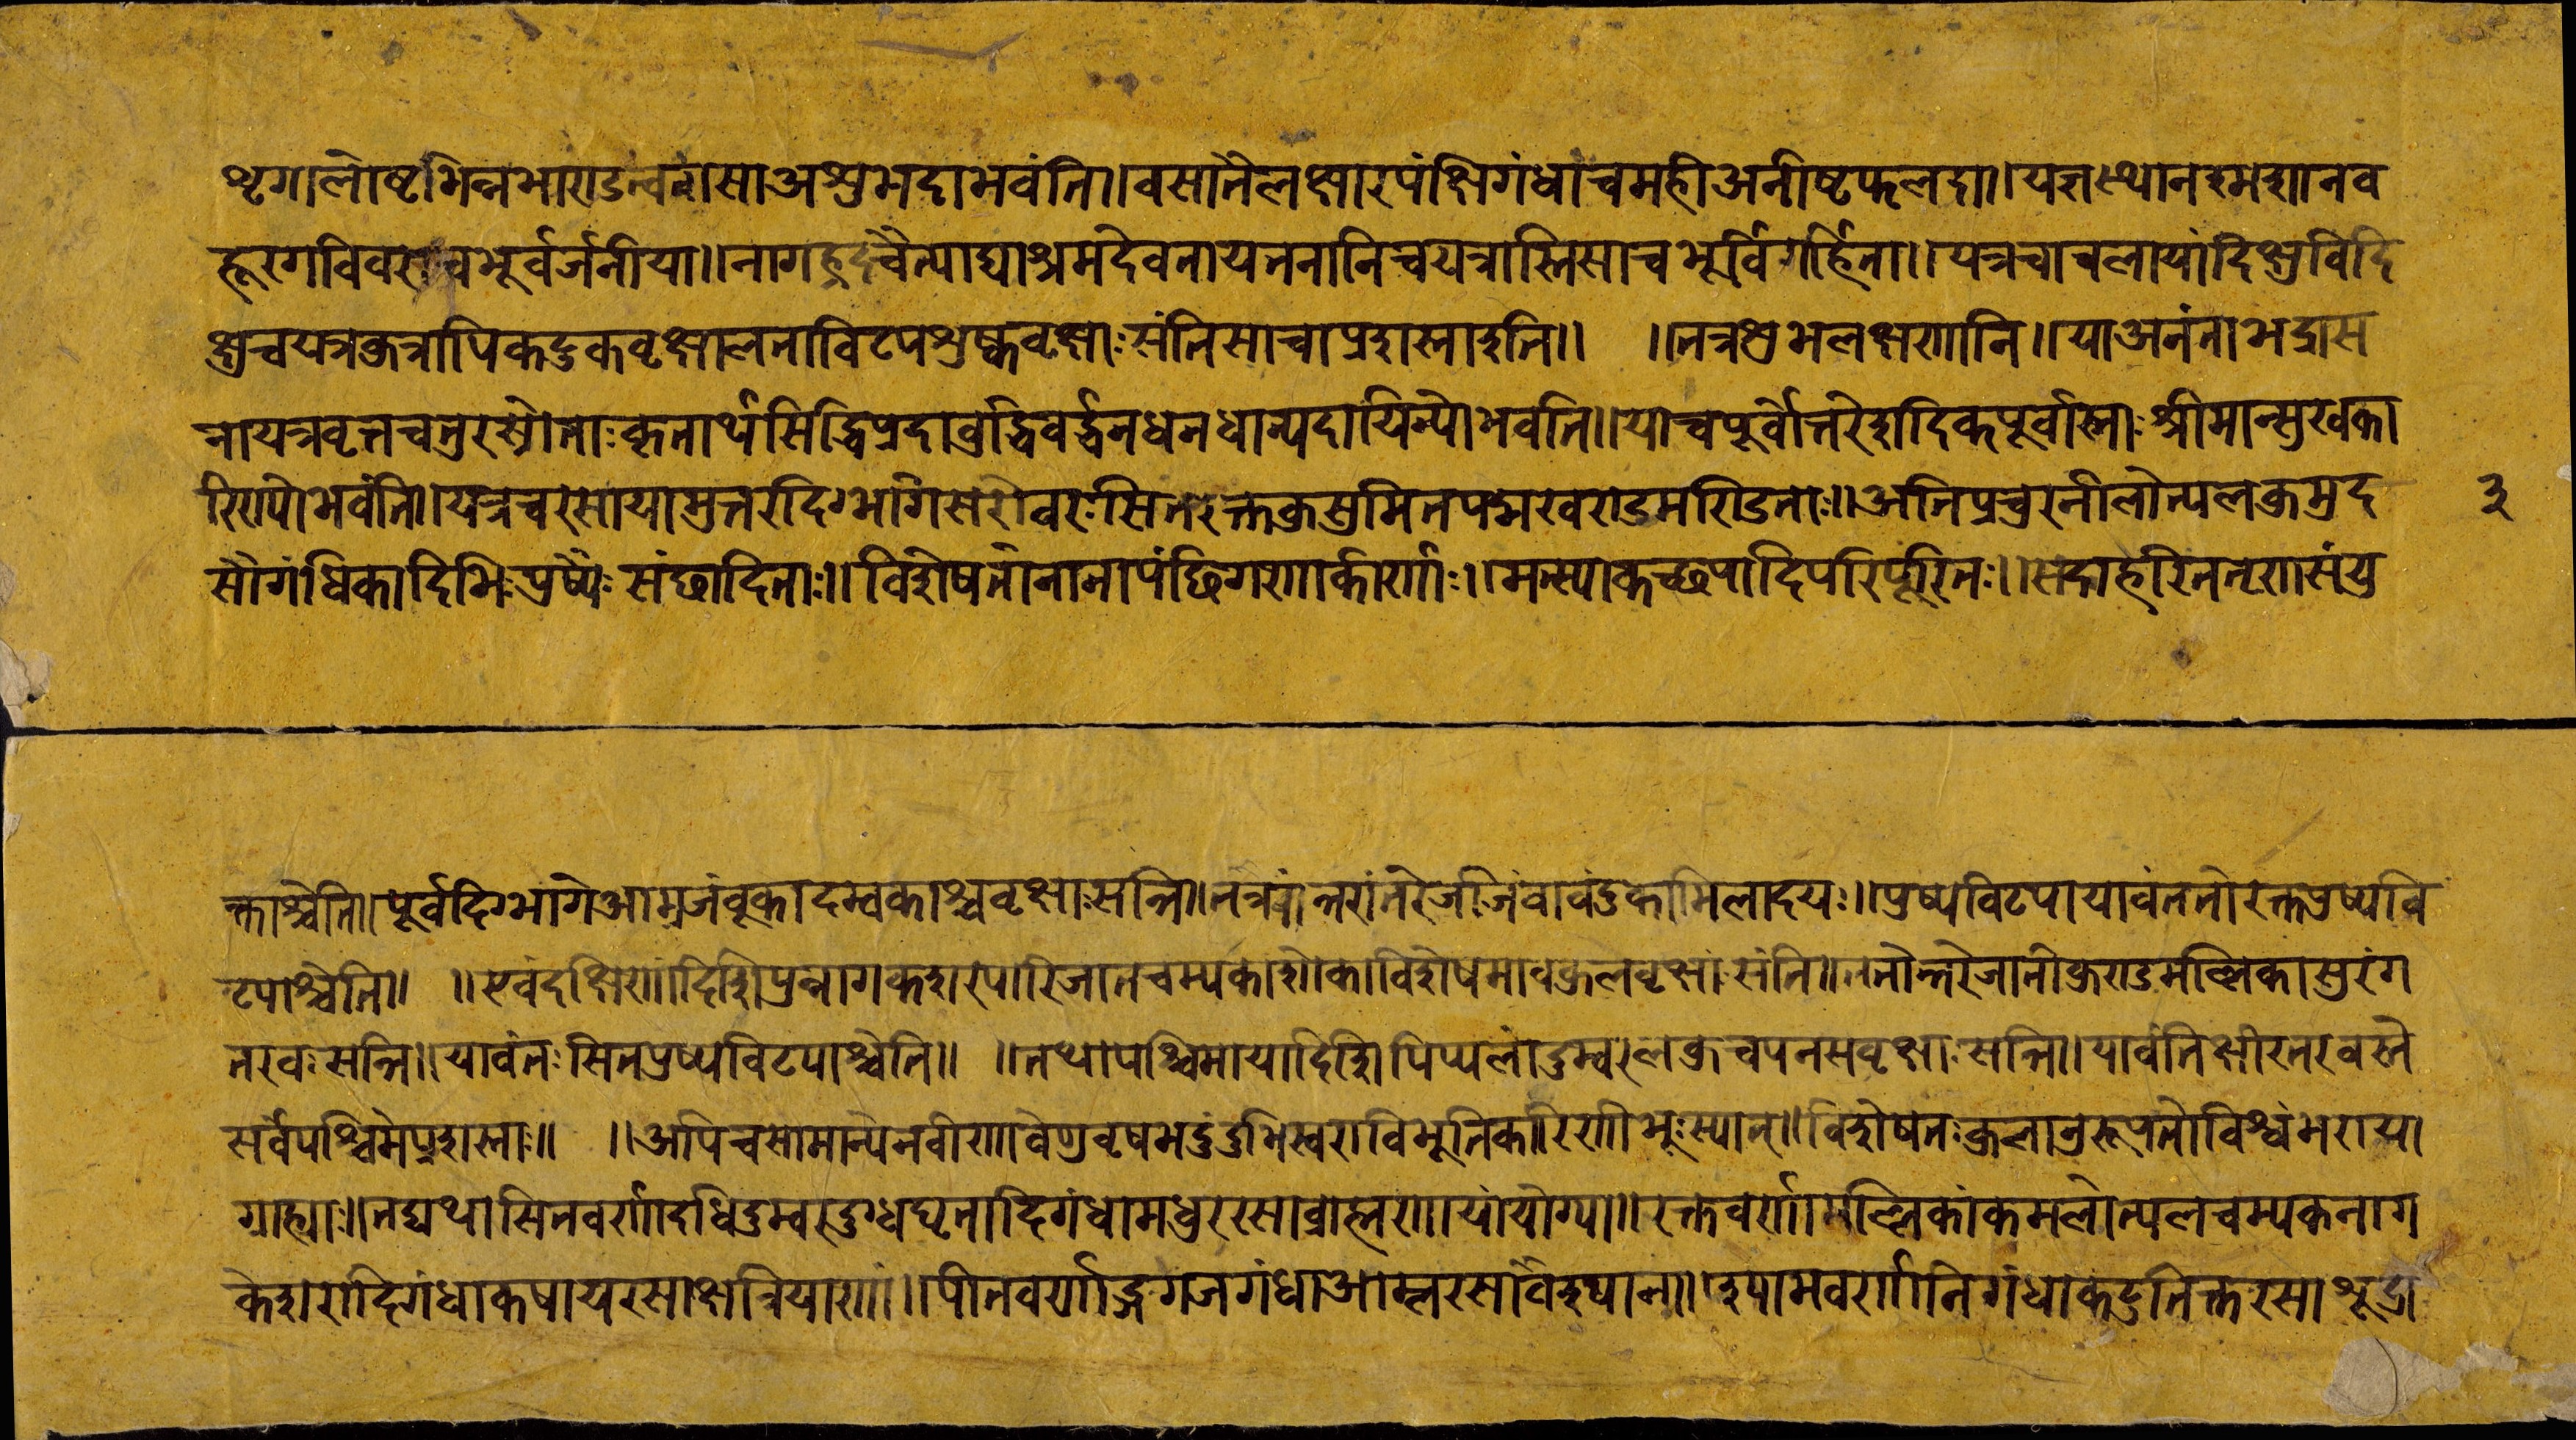 शृगालोष्टभिन्नभाराडन्वनासाअशुभदाभवंति॥वसातैलक्षारपंक्षिगंधाचमहीअनीष्टफलदा॥यज्ञस्थानश्मशानव
ह्नूरगविवरेचभूर्वर्जनीया॥नागह्रदचैत्याद्याश्रमदेवतायतनानिचयत्रास्तिसाचभूर्विगर्हिता॥यत्रचाचलायांदिक्षुविदि
क्षुचयत्रकुत्रापिकटुकवृक्षालताविटपशुष्कवृक्षाःसंतिसाचाप्रशस्ताइति॥ ॥तत्रशुभलक्षणानि॥याअनंताभद्रास
नायत्रवृत्तचतुरस्रोताःकृतार्थसिद्धिप्रदावुद्धिवर्द्धनधनधान्यदायिन्योभवति॥याचपूर्वोत्तरेशदिकपूर्वास्ताःश्रीमान्सुखका
रिण्योभवंति॥यत्रचरसायामुत्तरदिग्भागेसरोवरःसितरक्तकुसुमितपद्मखण्डमण्डिताः॥अतिप्रचुरनीलोत्पलकुमुद
सौगंधिकादिभिःपुष्पैःसंछादिताः॥विशेषतोनानापंछिगणाकीर्णाः॥मत्स्याकच्छपादिपरिपूरितः॥सदाहरिततृणसंयु
३
क्ताश्चेति॥पूर्वदिग्भागेआम्रजंवूकादम्वकाश्चवृक्षाःसन्ति॥तत्रैवांन्तरांतरेजीजिंवावंदुकामिलादयः॥पुष्पविटपायावंततोरक्तपुष्पवि
टपाश्चेति॥ ॥एवंदक्षिणांदिशिपुन्नागकेशरपारिजातचम्पकाशोकाविशेषमावकुलवृक्षाःसंति॥ततोन्तरेजातीकुरण्डमल्लिकासुरंग
तरवःसन्ति॥यावंतःसितपुष्पविटपाश्चेति॥ ॥तथापश्चिमायादिशिपिप्पलाडुम्वरलकुचपनसवृक्षाःसन्ति॥यावंतिक्षीरतरवस्ते
सर्वेपश्चिमेप्रशस्ताः॥ ॥अपिचसामान्येनवीणावेणुवृषभदुंदुभिस्वराविभूतिकारिणीभूःस्यात्॥विशेषतःकुलानुरूपतोविश्वंभराया
ग्राह्याः॥तद्यथासितवर्णादधिडुम्वरदुग्धघृतादिगंधामधुररसाव्राह्मणायांयोग्या॥रक्तवर्णामल्लिकाकमलोत्पलचम्पकनाग
केशरादिगंधाकषायरसाक्षत्रियाणां॥पीतवर्णाङ्गगजगंधाआम्लरसावैश्यान॥श्यामवर्णानिगंधाकटुतिक्तरसाशूद्रा